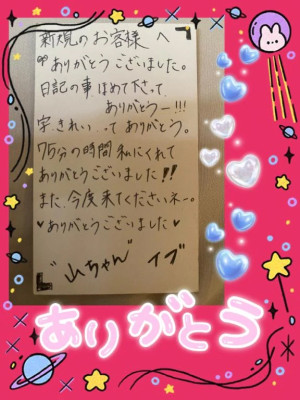 新規のお客様へ
ありがとうございました。
日記の事ほめて下さって、
ありがとうー!!!
字きれいってありがとう。
75分の時間私にくれて
ありがとうございました!!
また、今度来てくださいネー。
♥ありがとうございました♥
"山ちゃん" イブ
ありがとう